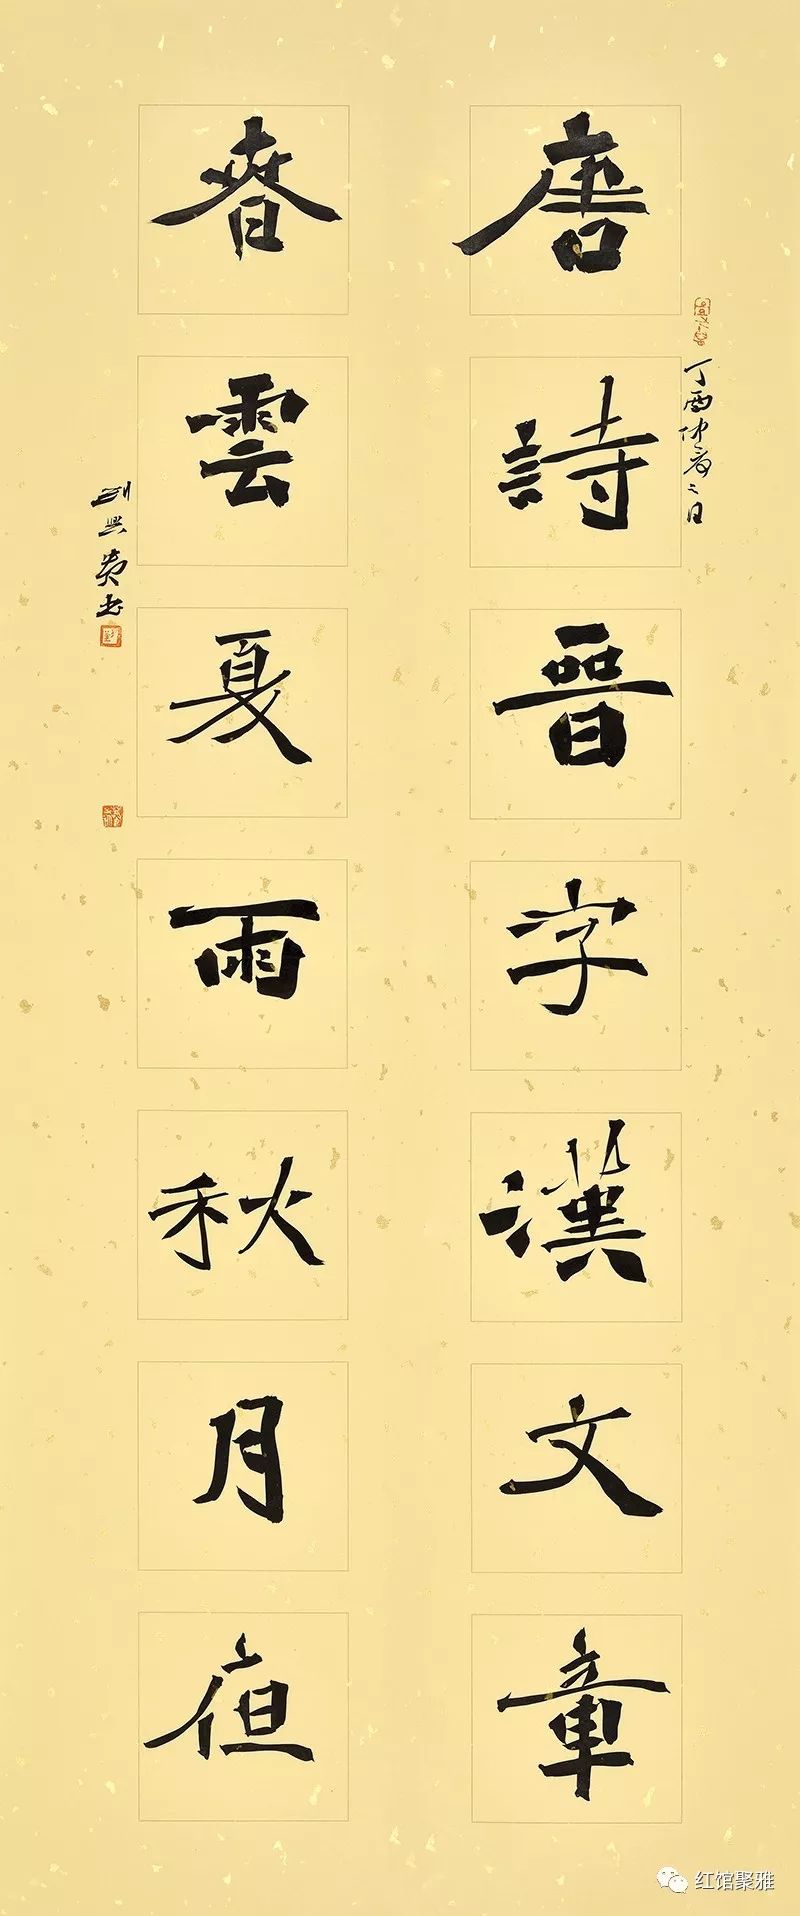 唐詩晉字漢文章
丁酉仲之日
春雲夏雨秋月夜
书
红馆聚雅